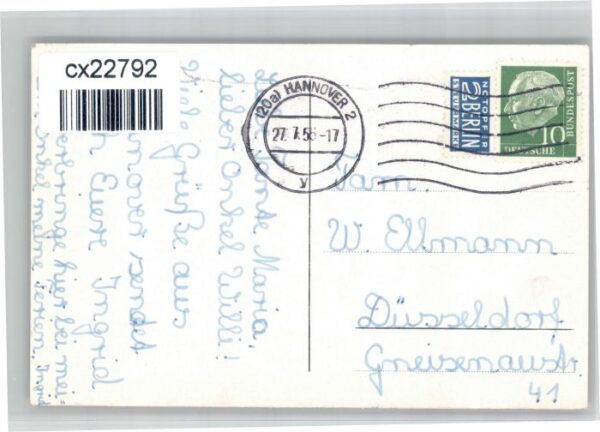 cx22792
Tante Maria,
lieber Onkel Willi!
Viele Grüße aus
sendet
Euch Eure Ingrid
Verbringe hier bei mei-
nem Onkel meine Ferien. Ingrid
(20a) HANNOVER 2
27.7.55-17
y
NOTOPFER
2 BERLIN
STEUERMARKE
10
DEUTSCHE
BUNDESPOST
Fam.
W. Ellmann
Düsseldorf
Gneisenaustr.
41